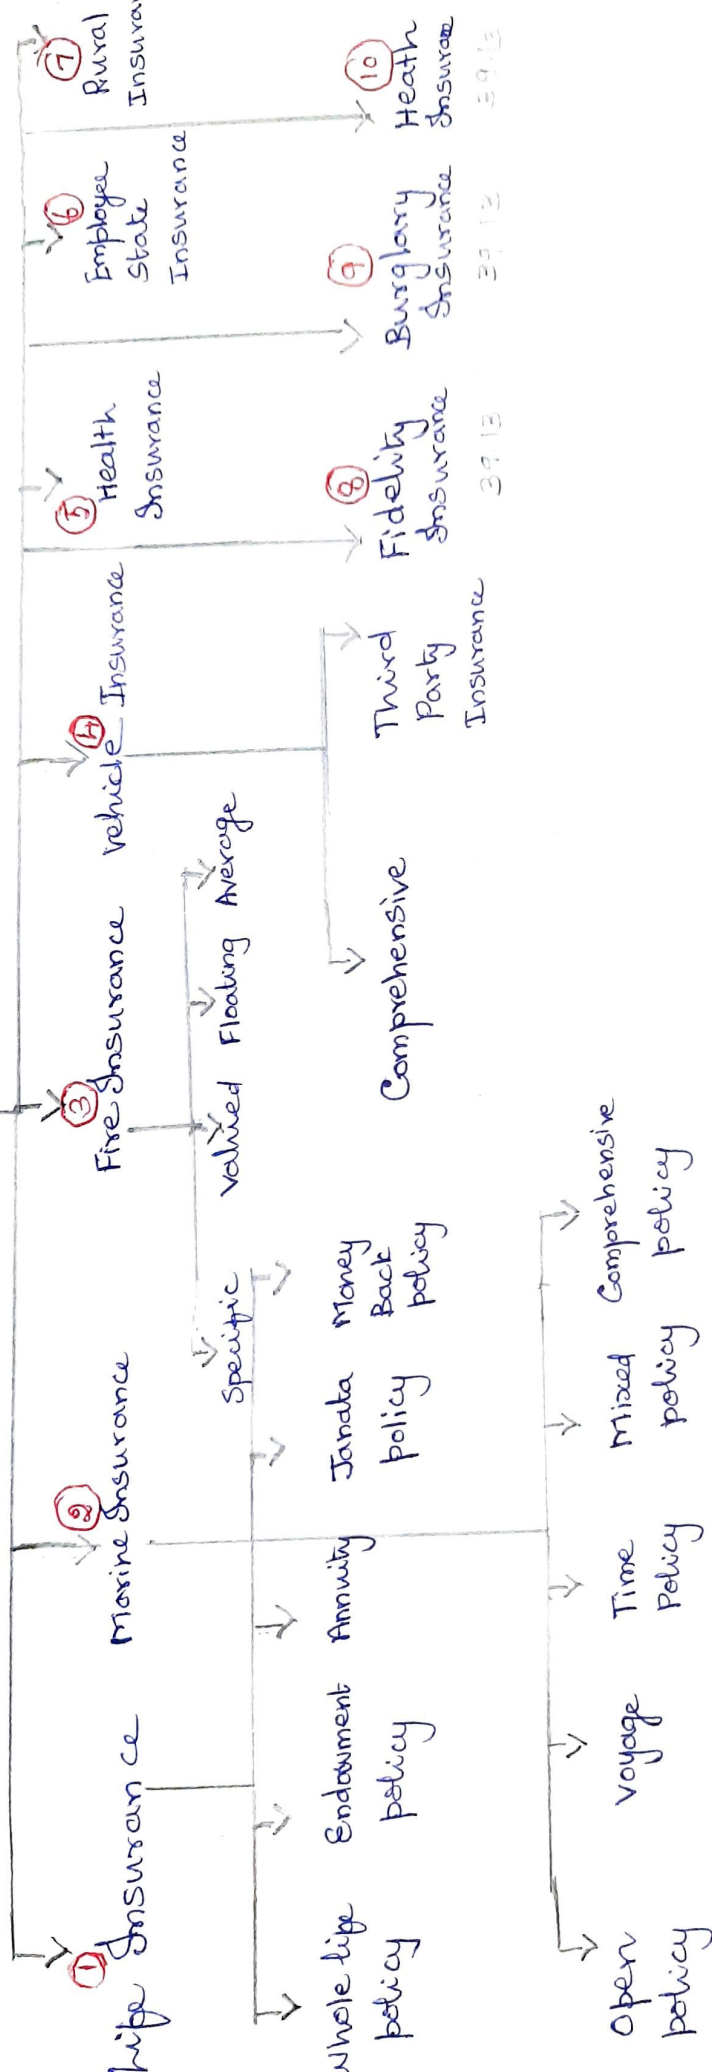 ①
Life Insurance
②
Marine Insurance
③
Fire Insurance
④
Vehicle Insurance
⑤
Health
Insurance
⑥
Employee
State
Insurance
⑦
Rural
Insura
Whole life
policy
Endowment
policy
Annuity
Janata
policy
Money
Back
policy
Specific
Valued
Floating
Average
Comprehensive
Third
Party
Insurance
⑧
Fidelity
Insurance
⑨
Burglary
Insurance
⑩
Heath
Insurane
39.13
39.13
39.13
Open
policy
Voyage
Time
Policy
Mixed
policy
Comprehensive
policy